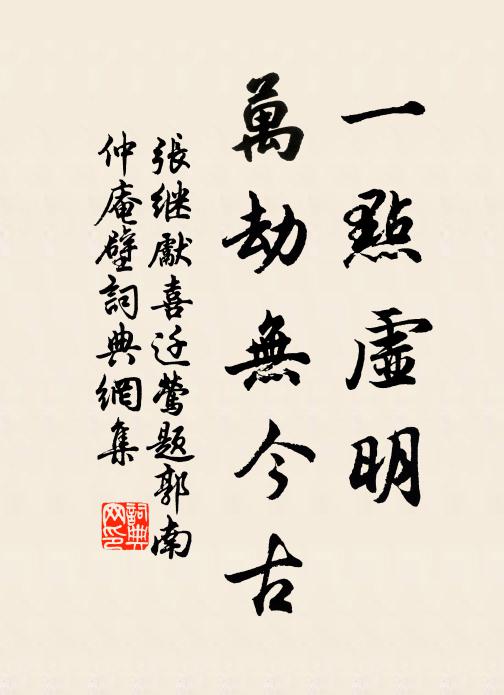 一點虛明
萬劫無今古
張继獻喜迁鶯題郭南
仲庵壁詞典網集
詞典
网印